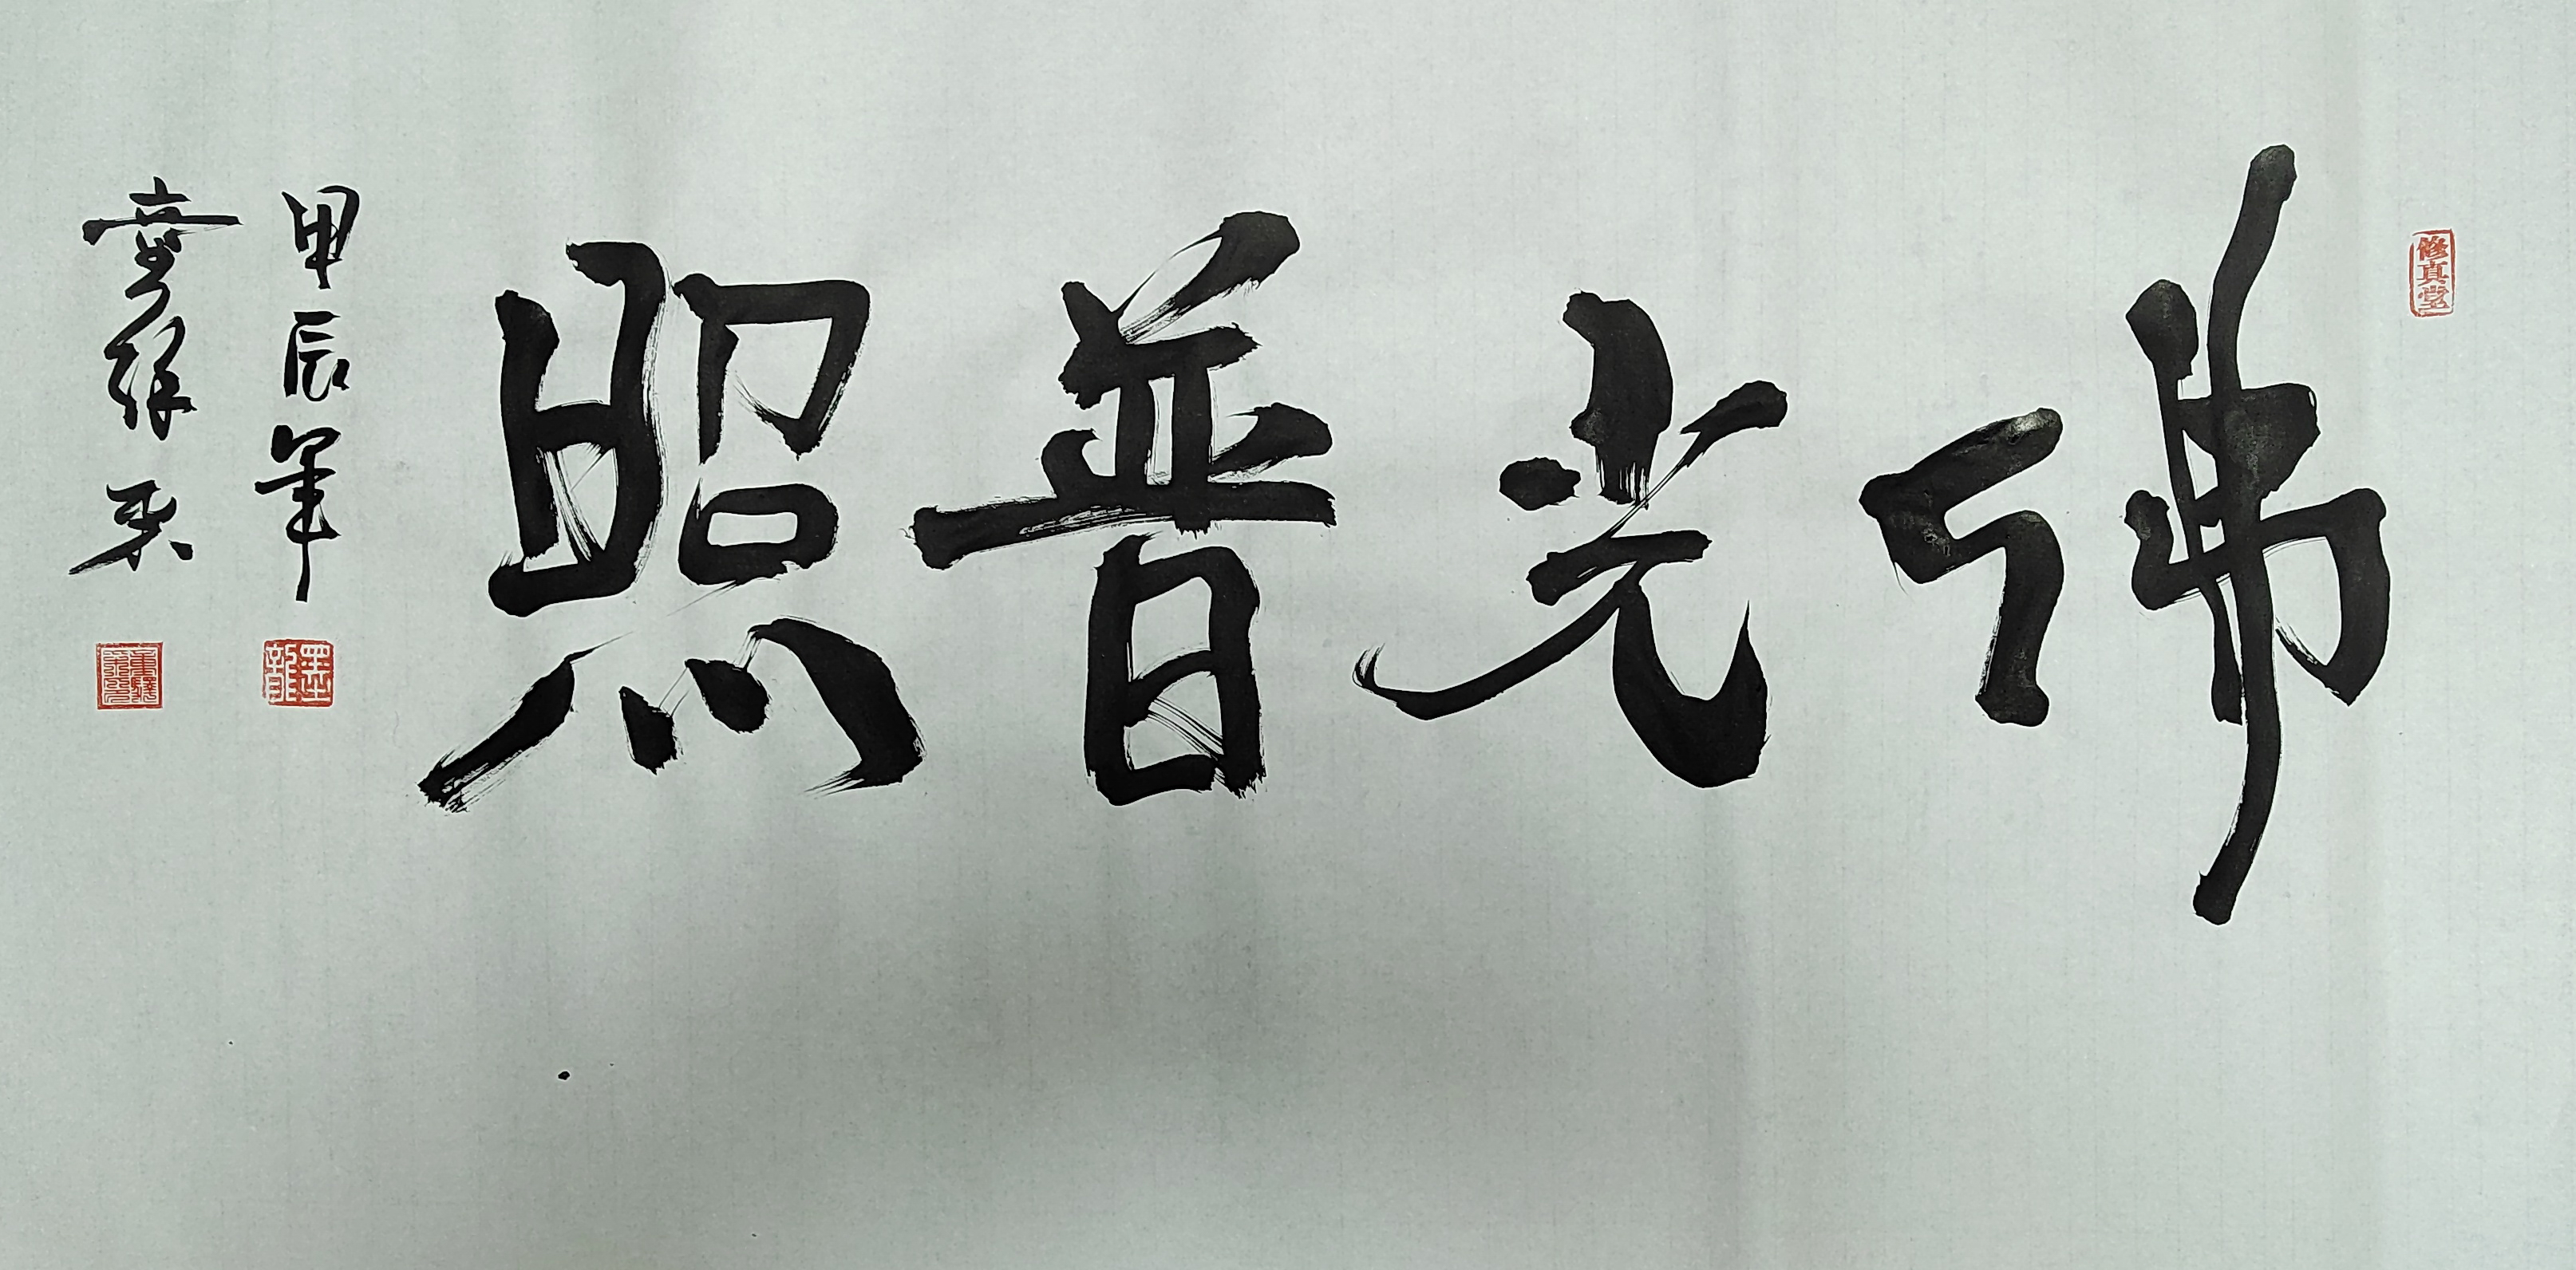 修真堂
佛光普照
甲辰年
墨龍